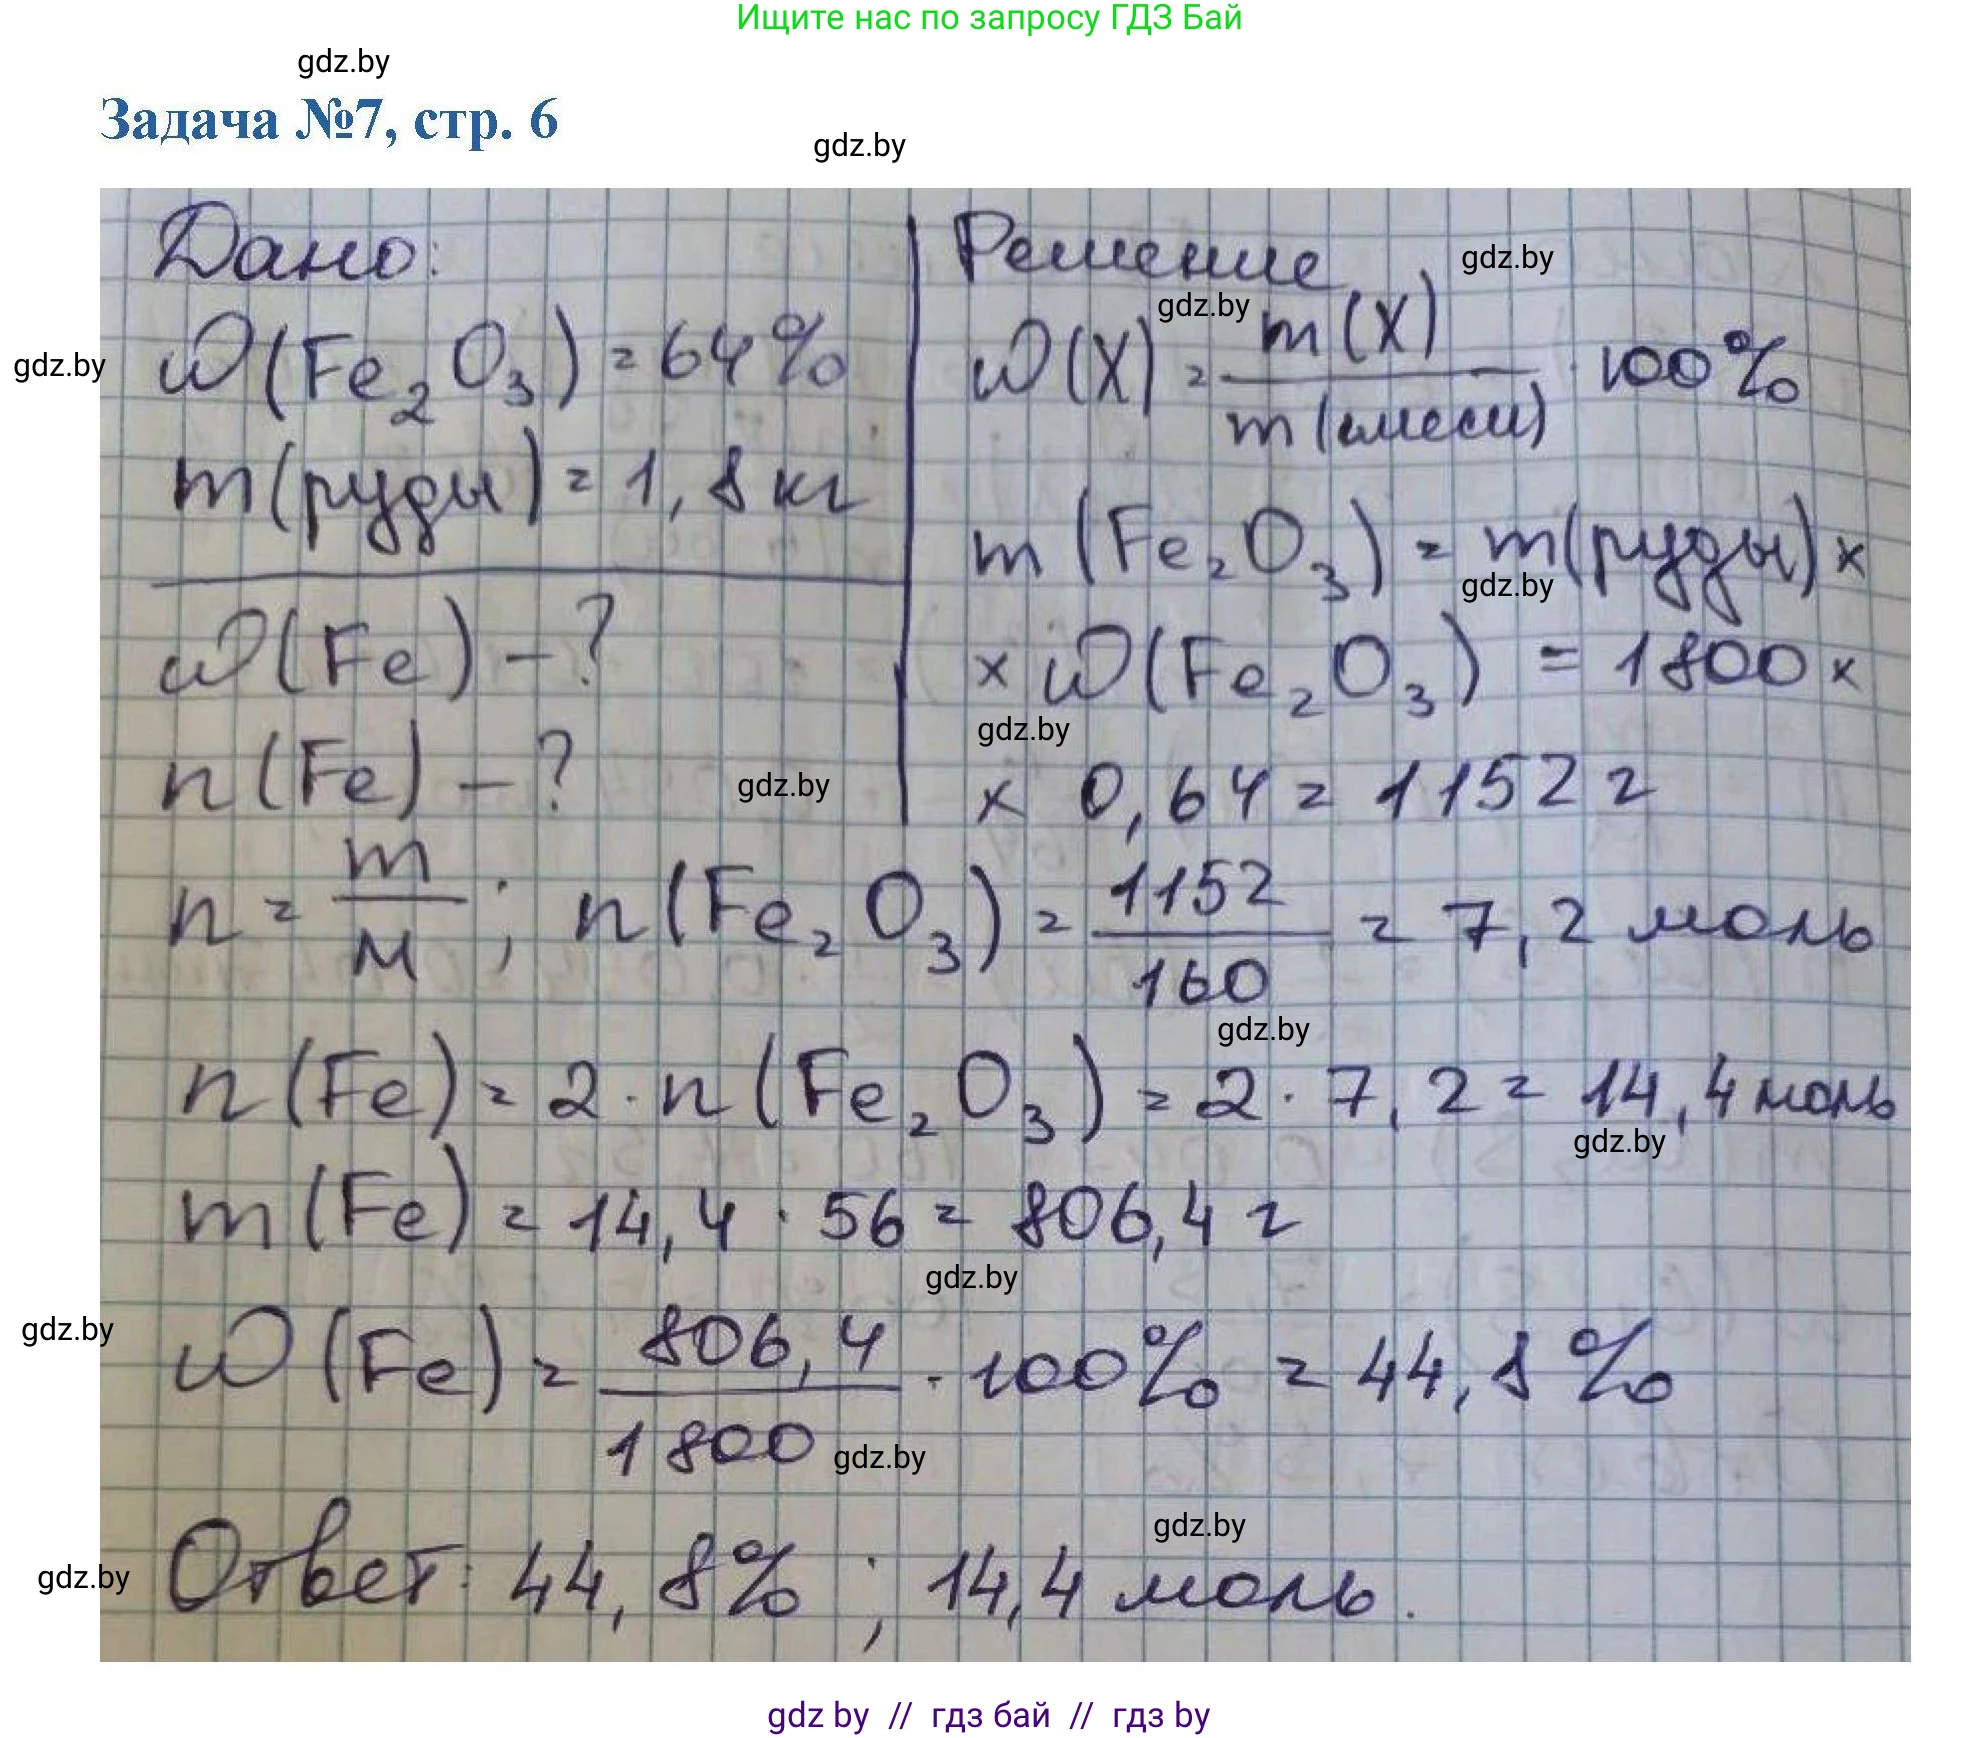 Ищите нас по запросу ГДЗ Бай
gdz.by
Задача №7, стр. 6
gdz.by
Дано:
w(Fe₂O₃) = 64%
m(руды) = 1,8 кг
w(Fe) - ?
n(Fe) - ?
Решение
gdz.by
gdz.by
gdz.by
w(X) = m(X) / m(смеси) · 100%
m(Fe₂O₃) = m(руды) ×
gdz.by
× w(Fe₂O₃) = 1800 ×
gdz.by
gdz.by
× 0,64 = 1152 г
n = m / M ; n(Fe₂O₃) = 1152 / 160 = 7,2 моль
gdz.by
n(Fe) = 2 · n(Fe₂O₃) = 2 · 7,2 = 14,4 моль
gdz.by
m(Fe) = 14,4 · 56 = 806,4 г
gdz.by
gdz.by
w(Fe) = 806,4 / 1800 · 100% = 44,8%
gdz.by
gdz.by
gdz.by
Ответ: 44,8% ; 14,4 моль.
gdz by // гдз бай // гдз by